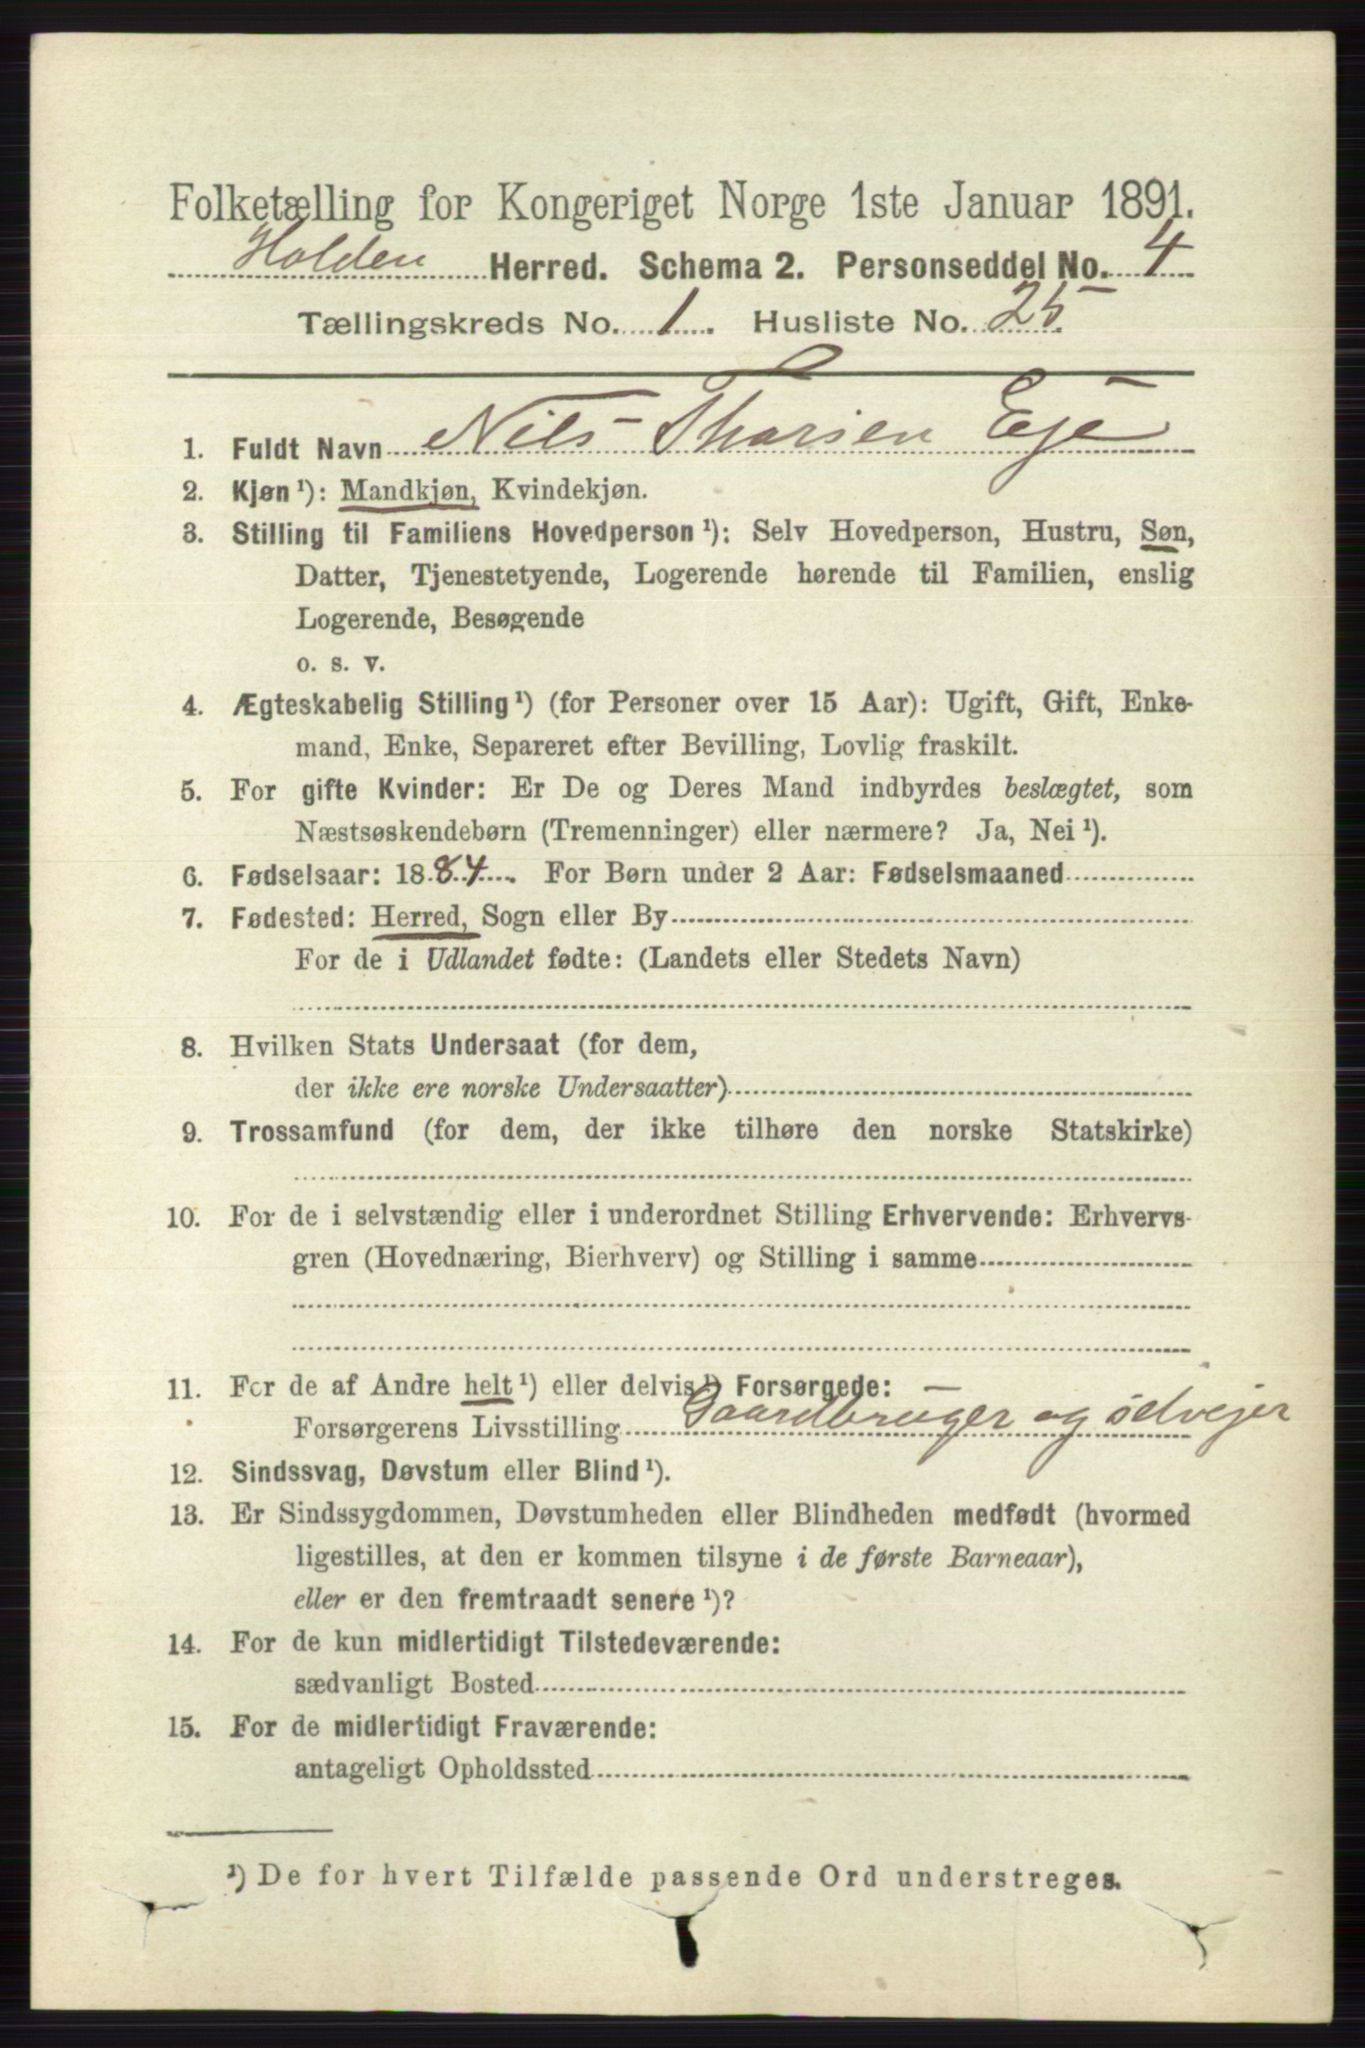 Folketælling for Kongeriget Norge 1ste Januar 1891.
Holden Herred. Schema 2. Personseddel No. 4
Tællingskreds No. 1. Husliste No. 25
1. Fuldt Navn Nils Tharsen Eje
2. Kjøn ¹): Mandkjøn, Kvindekjøn.
3. Stilling til Familiens Hovedperson ¹): Selv Hovedperson, Hustru, Søn,
Datter, Tjenestetyende, Logerende hørende til Familien, enslig
Logerende, Besøgende
o. s. v.
4. Ægteskabelig Stilling ¹) (for Personer over 15 Aar): Ugift, Gift, Enke-
mand, Enke, Separeret efter Bevilling, Lovlig fraskilt.
5. For gifte Kvinder: Er De og Deres Mand indbyrdes beslægtet, som
Næstsøskendebørn (Tremenninger) eller nærmere? Ja, Nei ¹).
6. Fødselsaar: 1884. For Børn under 2 Aar: Fødselsmaaned
7. Fødested: Herred, Sogn eller By
For de i Udlandet fødte: (Landets eller Stedets Navn)
8. Hvilken Stats Undersaat (for dem,
der ikke ere norske Undersaatter)
9. Trossamfund (for dem, der ikke tilhøre den norske Statskirke)
10. For de i selvstændig eller i underordnet Stilling Erhvervende: Erhvervs-
gren (Hovednæring, Bierhverv) og Stilling i samme
11. For de af Andre helt ¹) eller delvis ¹) Forsørgede:
Forsørgerens Livsstilling Gaardbruger og selvejer
12. Sindssvag, Døvstum eller Blind ¹).
13. Er Sindssygdommen, Døvstumheden eller Blindheden medfødt (hvormed
ligestilles, at den er kommen tilsyne i de første Barneaar),
eller er den fremtraadt senere ¹)?
14. For de kun midlertidigt Tilstedeværende:
sædvanligt Bosted
15. For de midlertidigt Fraværende:
antageligt Opholdssted
¹) De for hvert Tilfælde passende Ord understreges.